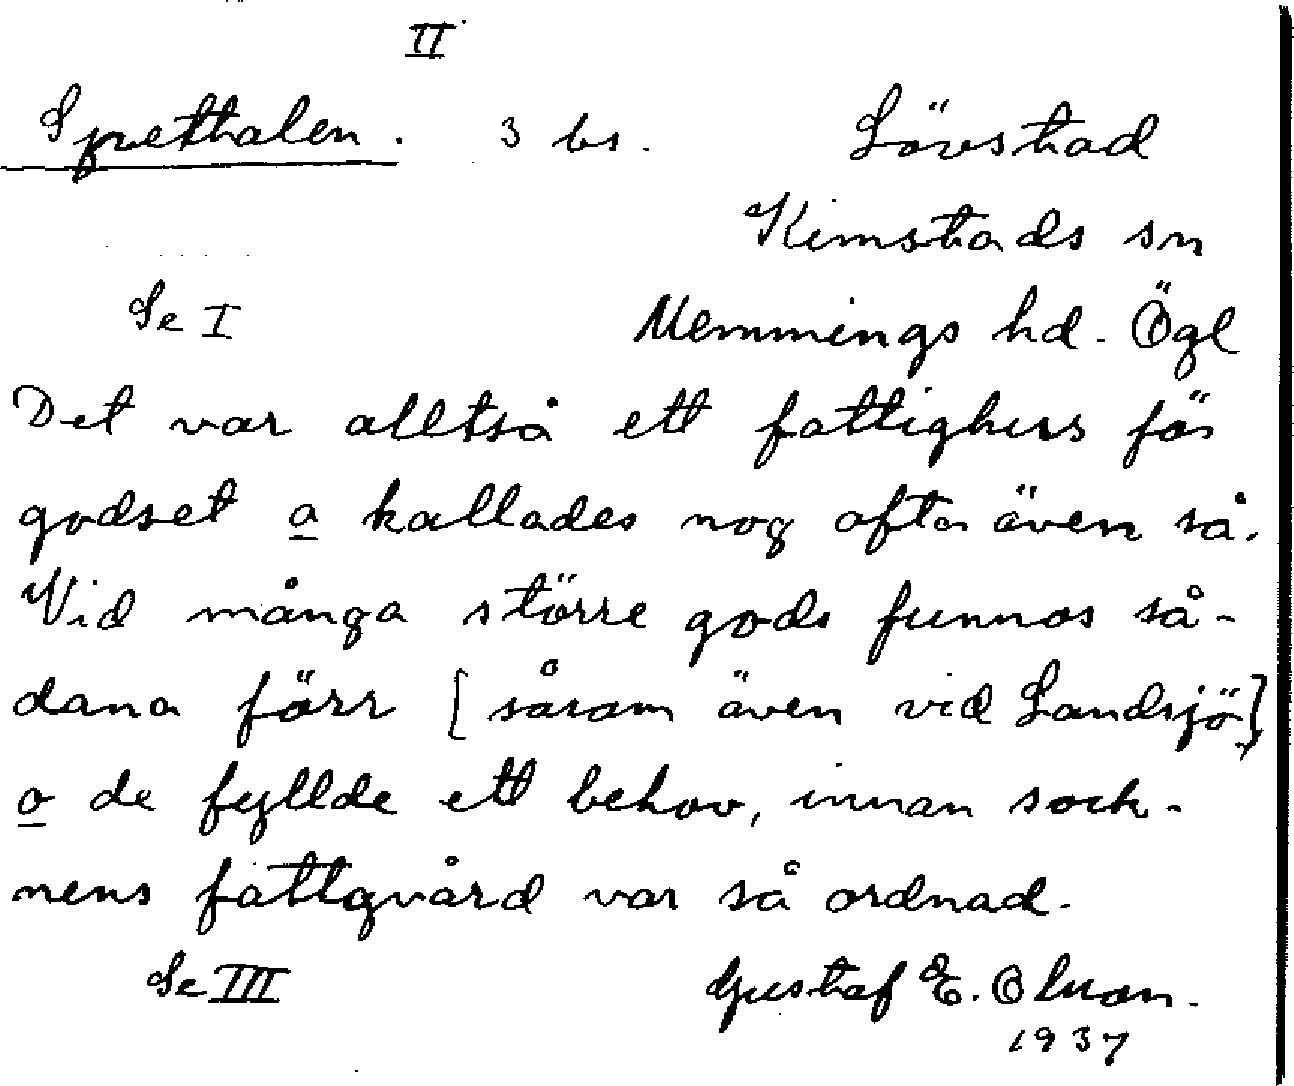 II
Spetthalen. 3 bs. Lövstad
Kimstads sn
Se I Memmings hd. Ögl
Det var alltså ett fattighus för
godset o kallades nog ofta även så.
Vid många större gods funnos så-
dana förr [såsom även vid Landsjö]
o de fyllde ett behov, innan sock-
nens fattgvård var så ordnad.
Se III Gustaf E. Olsson.
1937